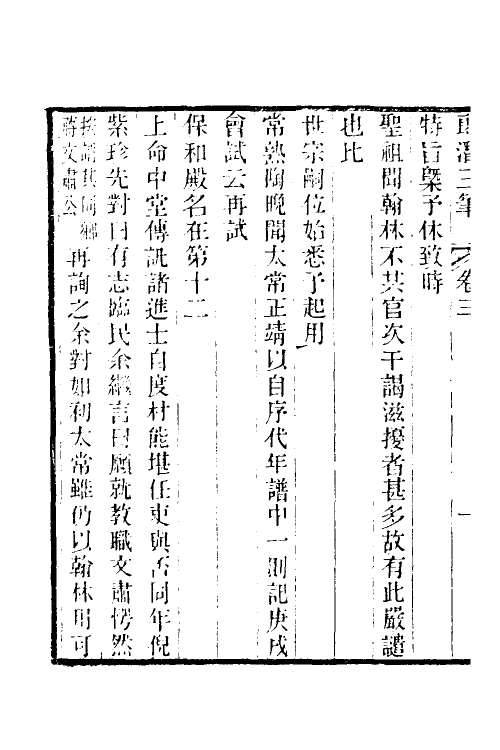 三筆 卷三 一
特旨槩予休致時
聖祖聞翰林不共官次干謁滋擾者甚多故有此嚴譴
也比
世宗嗣位始悉予起用
常熟陶晚聞太常正靖以自序代年譜中一則記庚戌
會試云再試
保和殿名在第十二
上命中堂傳訊諸進士自度材能堪任吏與否同年倪
紫珍先對曰有志臨民余繼言曰願就教職文肅愕然
其同鄉
蔣文肅公
再詢之余對如初太常雖仍以翰林用可